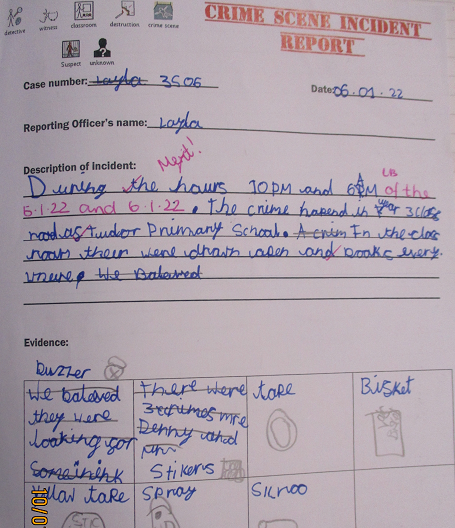 detective witness classroom destruction crime scene
Suspect unknown
CRIME SCENE INCIDENT
REPORT
Case number: Layla 3506
Date: 06.01.22
Reporting Officer's name: Layla
Merit!
Description of incident:
LB
During the hours 10PM and 6AM of the
5.1.22 and 6.1.22. The crime hapend in year 3 class
room as Tudor Primary School. A crim In the clas
room their were drawn open and books every
where. We Balaved
Evidence:
buzzer
We balaved There were tape Bisket
they were
looking for Penny and
Somethink Stikers
Yellow tape Spray